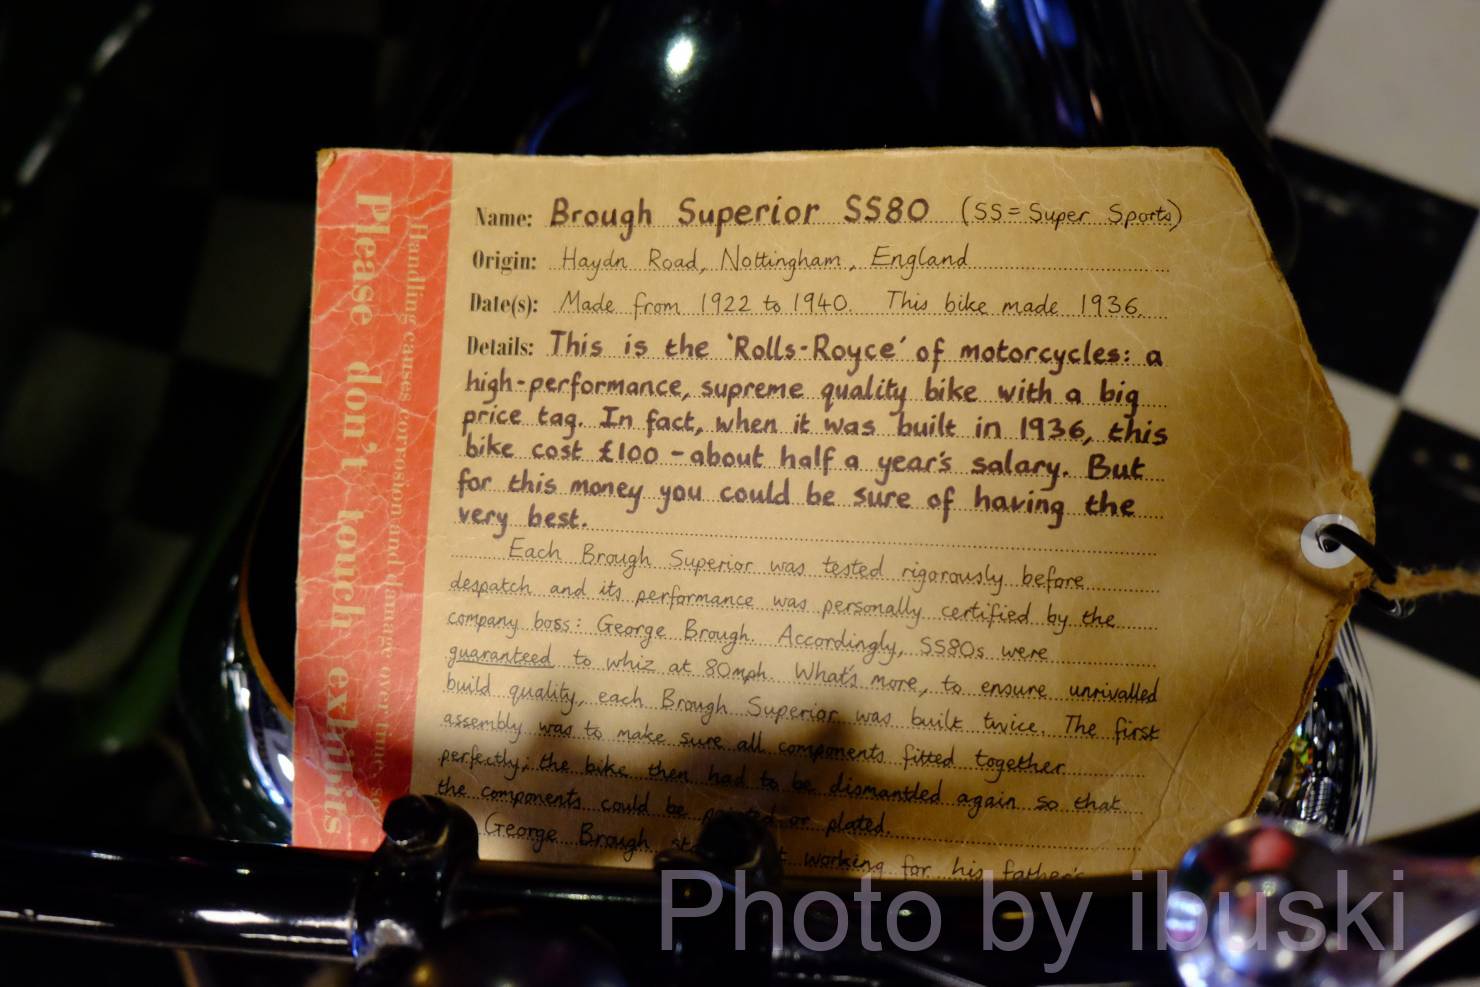 Please don't touch exhibits
Handling causes corrosion and damage over time, so
Name: Brough Superior SS80 (SS = Super Sports)
Origin: Haydn Road, Nottingham, England
Date(s): Made from 1922 to 1940. This bike made 1936.
Details: This is the 'Rolls-Royce' of motorcycles: a
high-performance, supreme quality bike with a big
price tag. In fact, when it was built in 1936, this
bike cost £100 - about half a year's salary. But
for this money you could be sure of having the
very best.
Each Brough Superior was tested rigorously before
despatch and its performance was personally certified by the
company boss: George Brough. Accordingly, SS80s were
guaranteed to whiz at 80mph. What's more, to ensure unrivalled
build quality, each Brough Superior was built twice. The first
assembly was to make sure all components fitted together
perfectly; the bike then had to be dismantled again so that
the components could be painted or plated.
George Brough working for his father's
Photo by ibuski